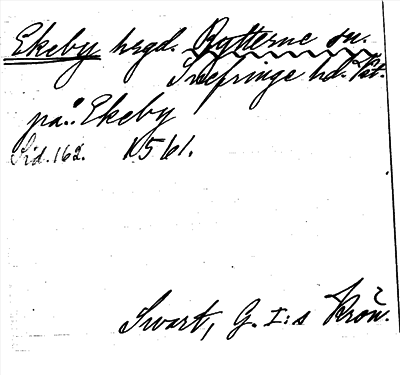 Ekeby hrgd. Rytterne sn.
Snefringe hd. Vst.
på: Ekeby
Sid. 162. 1561.
Swart, G. I:s Krön.